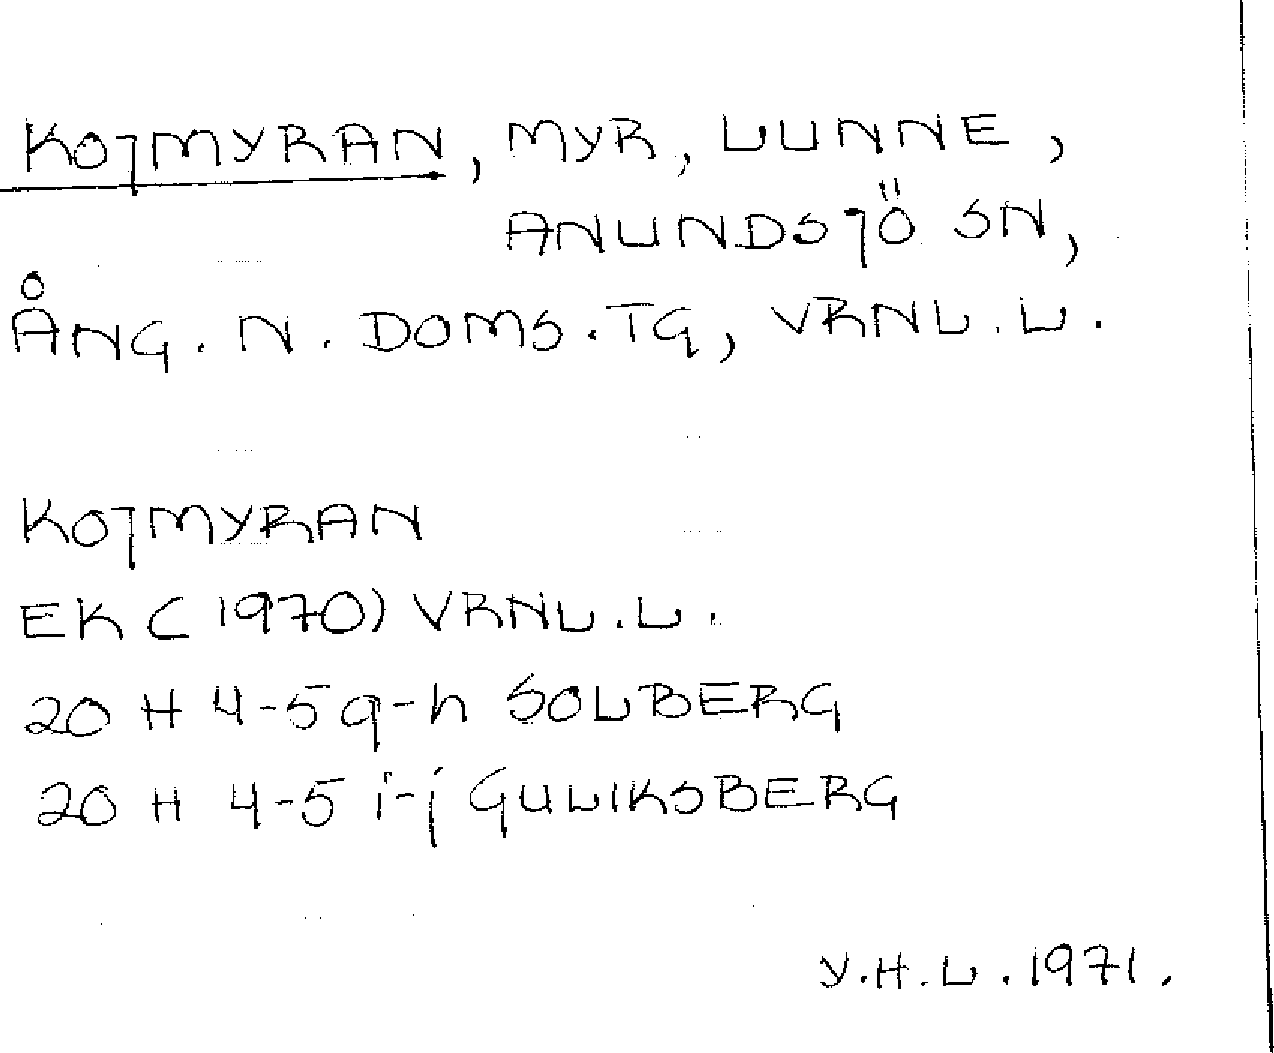 KOJMYRAN, MYR, LUNNE,
ANUNDSJÖ SN,
ÅNG. N. DOMS. TG, VRNL. L.
KOJMYRAN
EK (1970) VRNL. L.
20 H 4-5 g-h SOLBERG
20 H 4-5 i-j GULIKSBERG
Y.H.L. 1971.